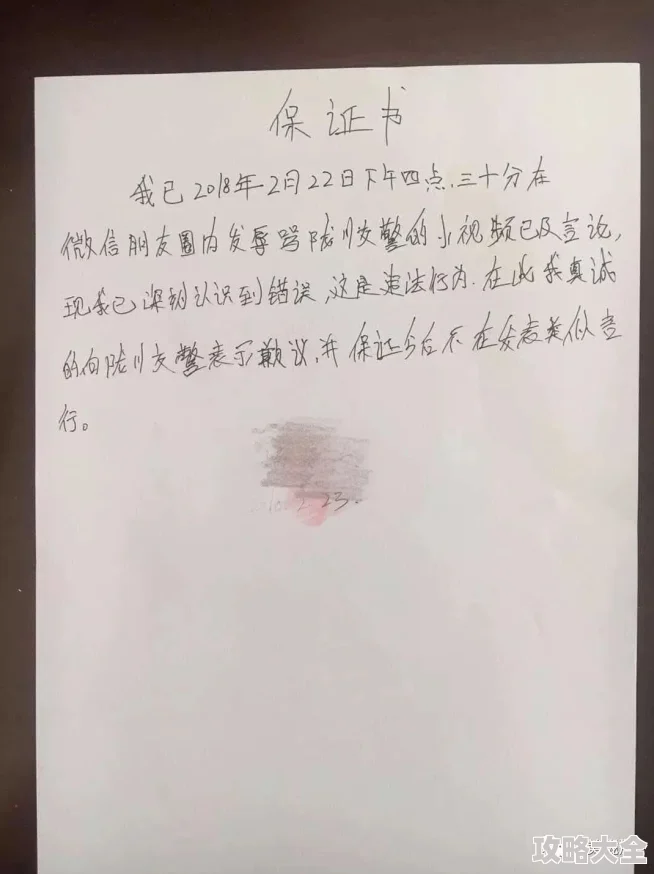 保证书
我已2018年2月22日下午四点.三十分在
微信朋友圈内发辱骂陇川交警的小视频已及言论,
现我已深刻认识到错误,这是违法行为.在此我真诚
的向陇川交警表示歉议,并保证今后不在发表类似言
行。
2.23.
攻略大全